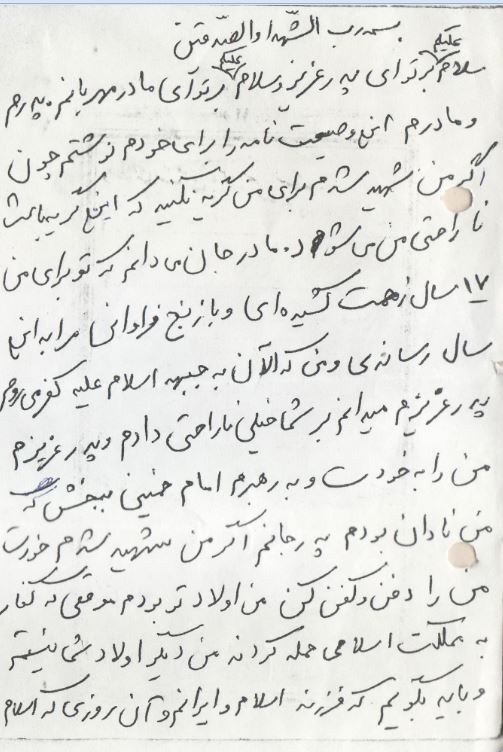 بسمه رب الشهدا والصدقین
سلام علیکم بر تو ای پدر عزیز وسلام علیکم بر تو ای مادر مهربانم. پدرم
و مادرم این وصیت نامه را برای خودم نوشتم چون
اگر من شهید شدم برای من گریه نکنید که این گریه باعث
ناراحتی من می شود. مادر جان می دانم که تو برای من
۱۷ سال زحمت کشیده ای و با رنج فراوان مرا به این
سال رسانده ی و من که الآن به جبهه اسلام علیه کفر می روم
پدر عزیزم میدانم بر شما خیلی ناراحتی دادم و پدر عزیزم
من را به خودت و به رهبرم امام خمینی ببخش که
من نادان بودم پدر جانم اگر من شهید شدم خودت
من را دفن و کفن کن من اولاد تو بودم موقعی که کفار
به مملکت اسلامی حمله کردند من دیگر اولاد شما نیستم
و باید بگویم که فرزند اسلام و ایرانم و آن روزی که اسلام